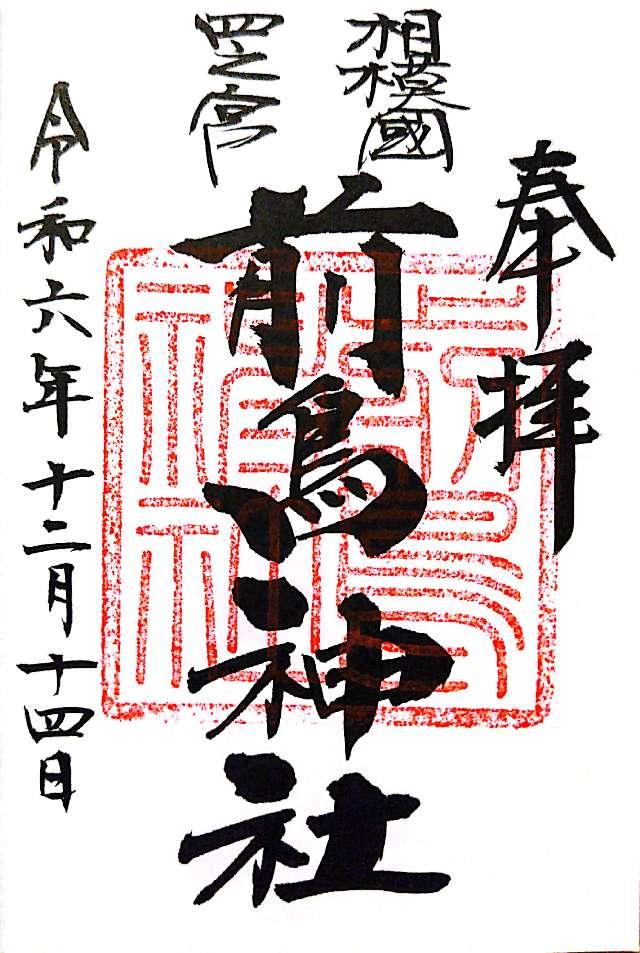 奉拝
相模國
四之宮
前鳥神社
令和六年十二月十四日